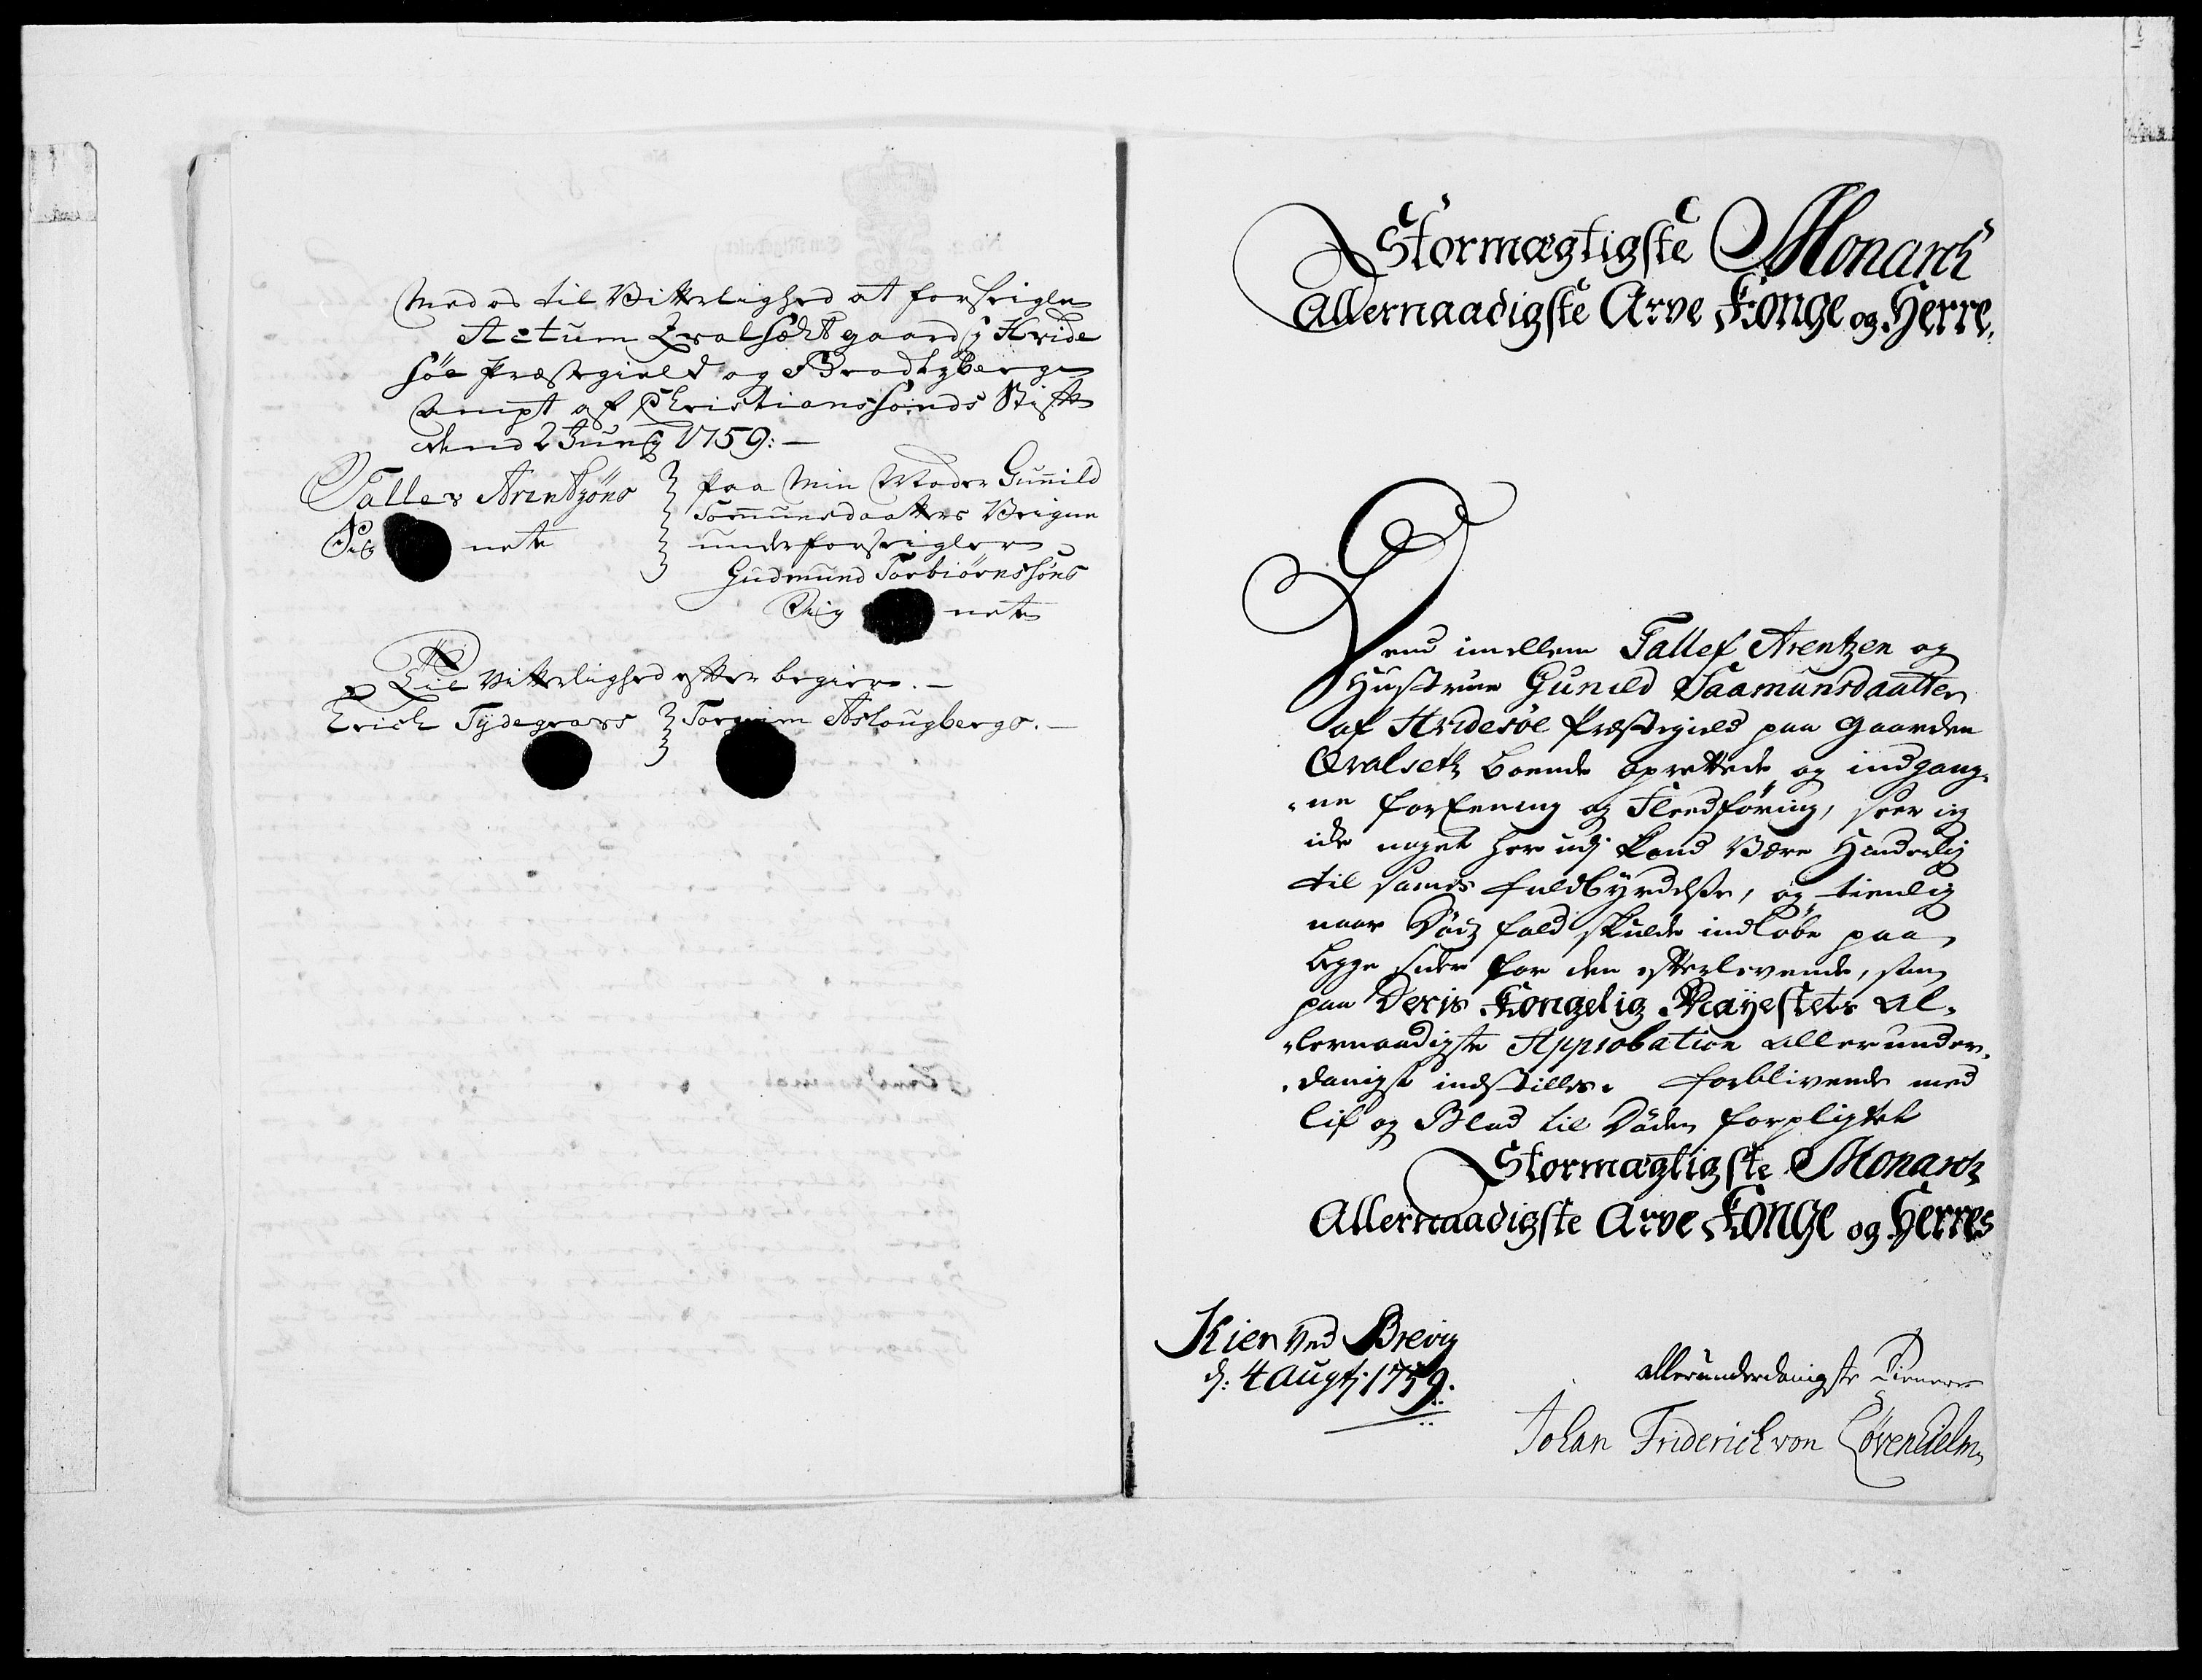 Med os til Vitterlighed at forseigle
Actum Qvalsæht gaard i Hvide
söe Præstegield og Bradtzbergs
Ampt af Christianssands Stift
dend 2 Junij 1759:-
Tallev Arentzöns
Sig nete
Paa Min Moder Gunild
Sommunsdaatters Veigne
underforseigler
Gudmund Torbiörnssöns
Sig nete
Til Vitterlighed efter begiere.-
Erich Tydegraes
Torgrim Aslougbergs.-
Stormægtigste Monarch
Allernaadigste Arve Konge og Herre.
Dend imellem Tallef Arentzen og
Hustrue Gunild Saamunsdaatter
af Hvidesöe Præstegield paa Gaarden
Qvalseth boende oprettede og indgang-
-ne forEening og Fledföring, seer ieg
icke noget her udj kand være Hinderlig
til sames fuldbyrdelse, og tienlig
naar Döds fald skulde indlöbe paa
begge sider for den efterlevende, som
paa Deris Kongelig Mayestets al-
-lernaadigste Approbation allerunder-
-danigst indstilles. forblivende med
lif og Blod til Döden forpligtet
Stormægtigste Monarch
Allernaadigste Arve Konge og Herres
Kien ved Brevig
d: 4 Augtj: 1759.
allerunderdanigste Tienere
Johan Friderich von Lövenhielm